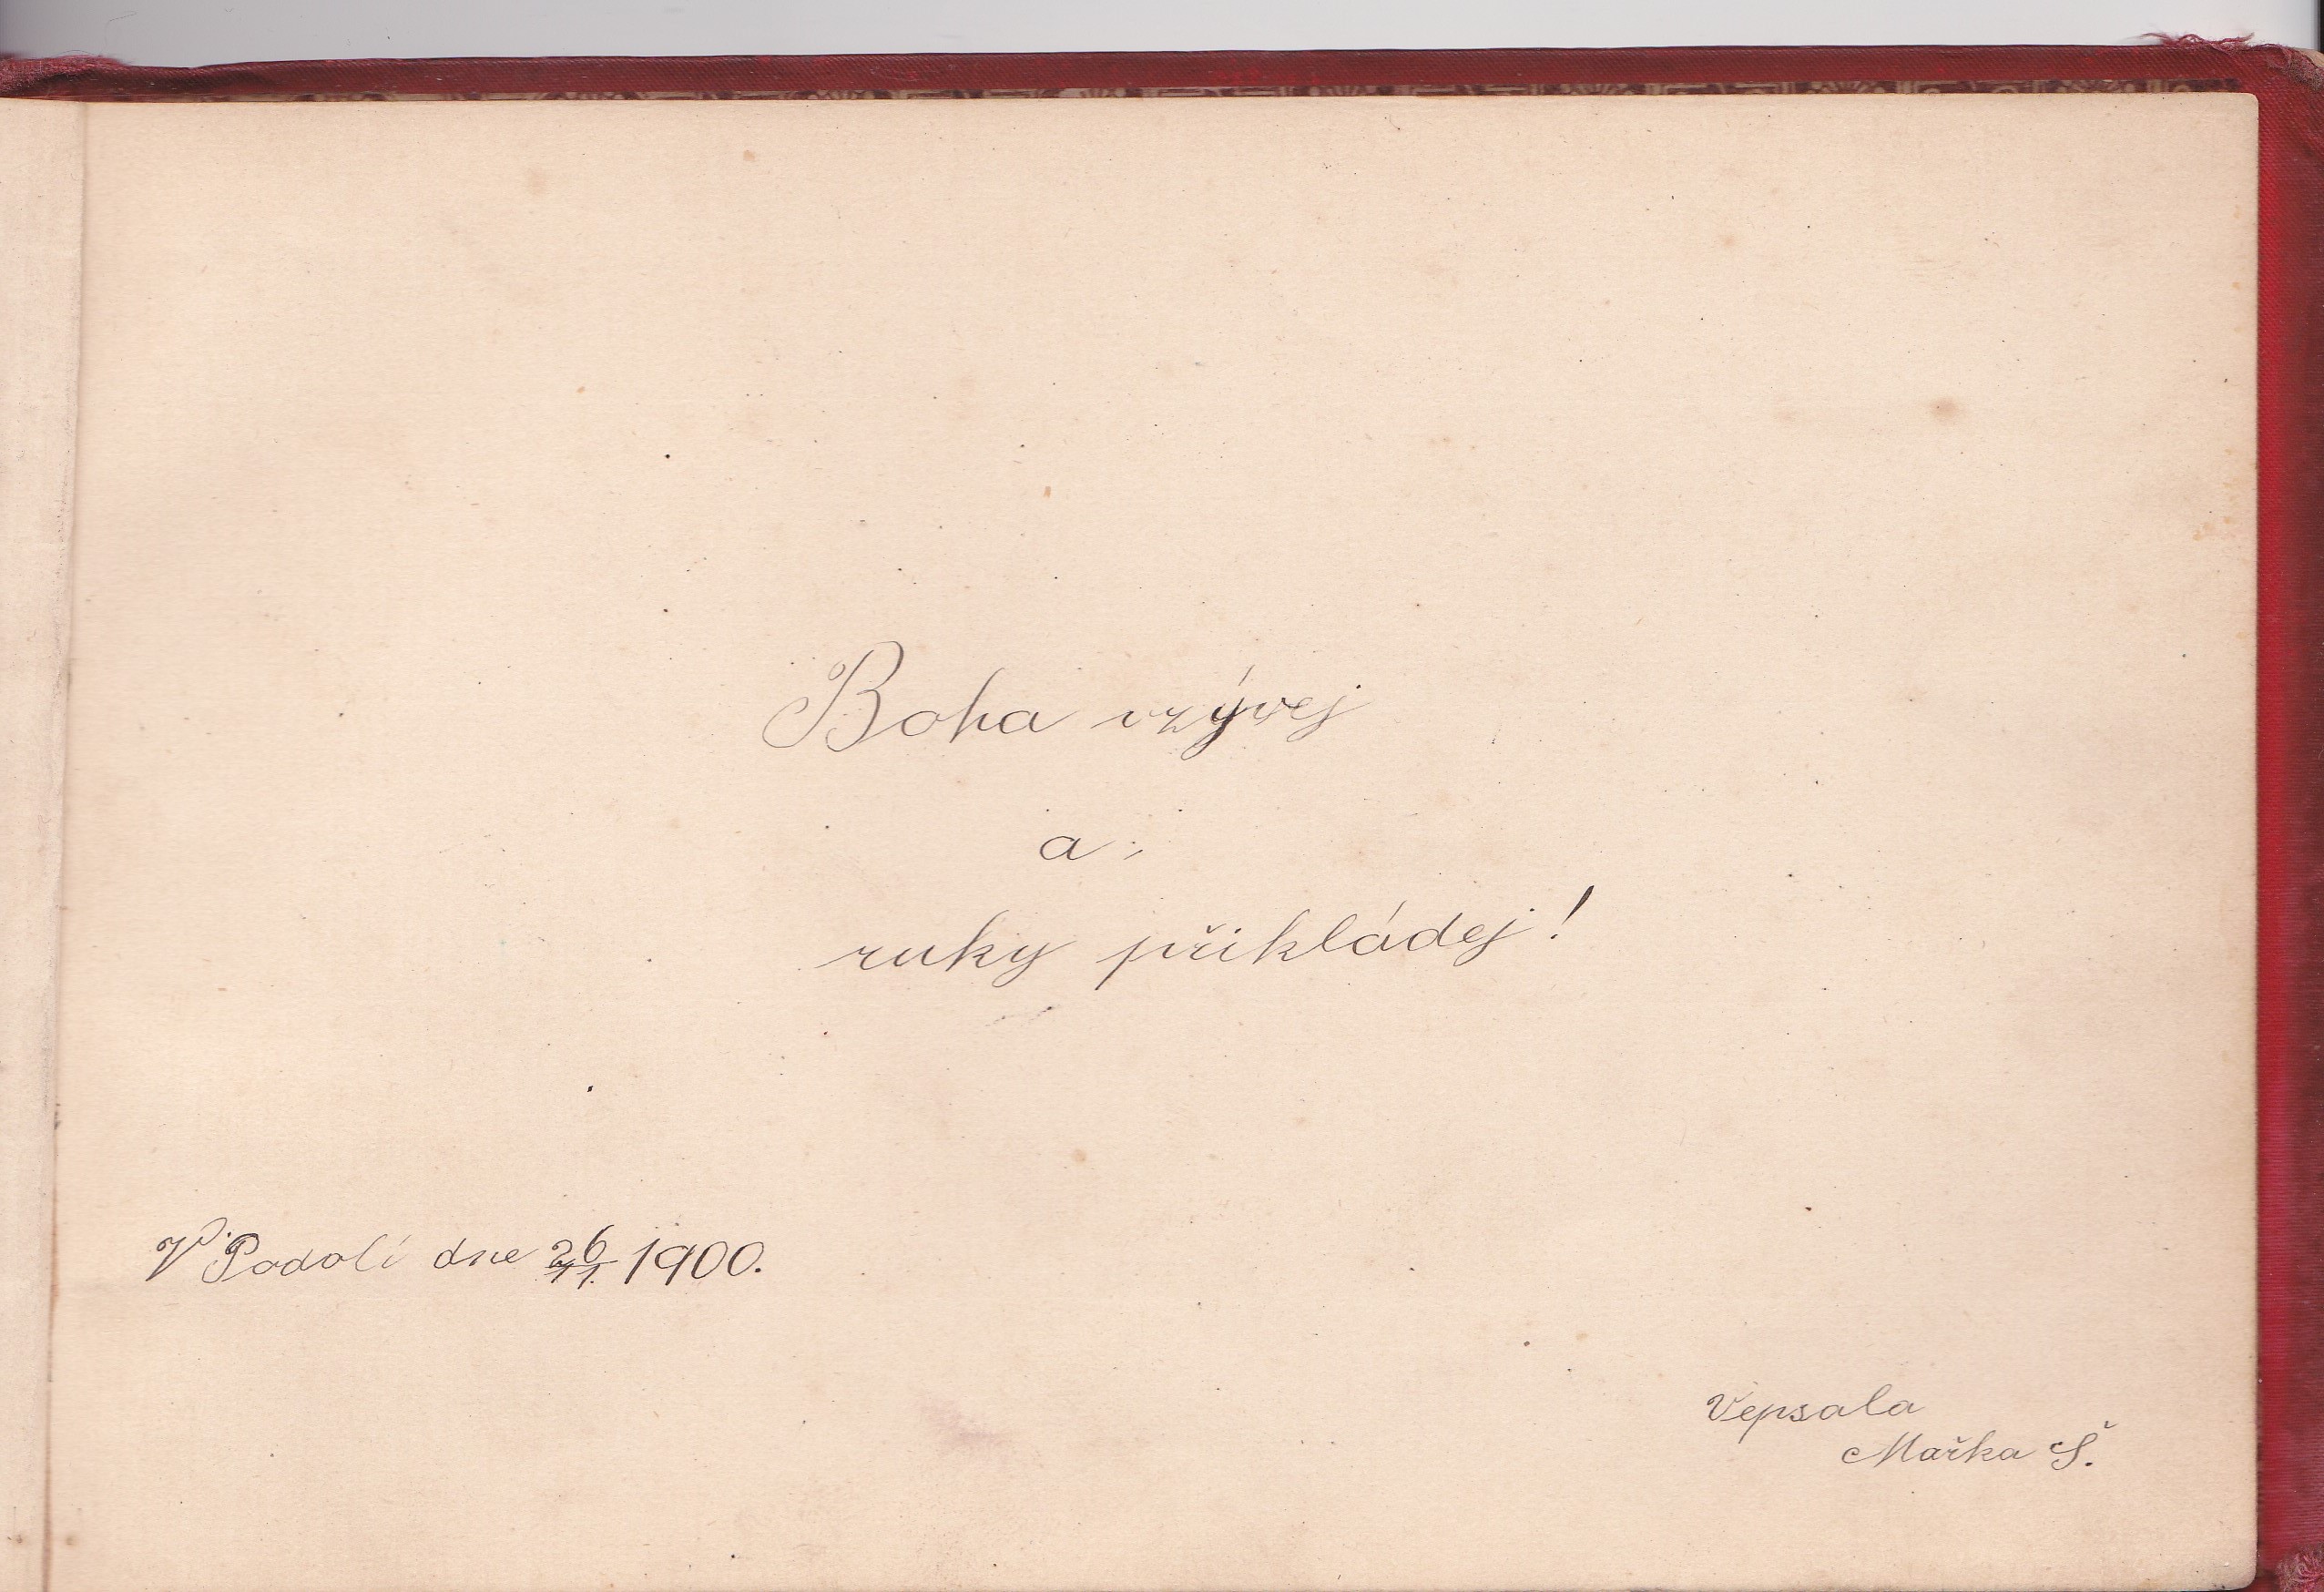 Boha vzývej
a
ruky přikládej!
V Podolí dne 26/11. 1900.
Vepsala
Mařka Š.